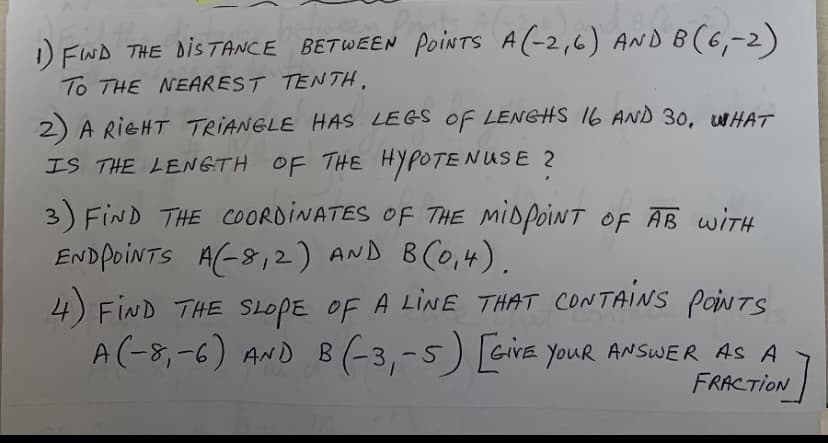 1) FIND THE DISTANCE BETWEEN POINTS A(-2,6) AND B(6,-2)
TO THE NEAREST TENTH.
2) A RIGHT TRIANGLE HAS LEGS OF LENGHS 16 AND 30. WHAT
IS THE LENGTH OF THE HYPOTENUSE ?
3) FIND THE COORDINATES OF THE MIDPOINT OF A̅B̅ WITH
ENDPOINTS A(-8,2) AND B(0,4).
4) FIND THE SLOPE OF A LINE THAT CONTAINS POINTS
A(-8,-6) AND B(-3,-5) [GIVE YOUR ANSWER AS A
FRACTION]